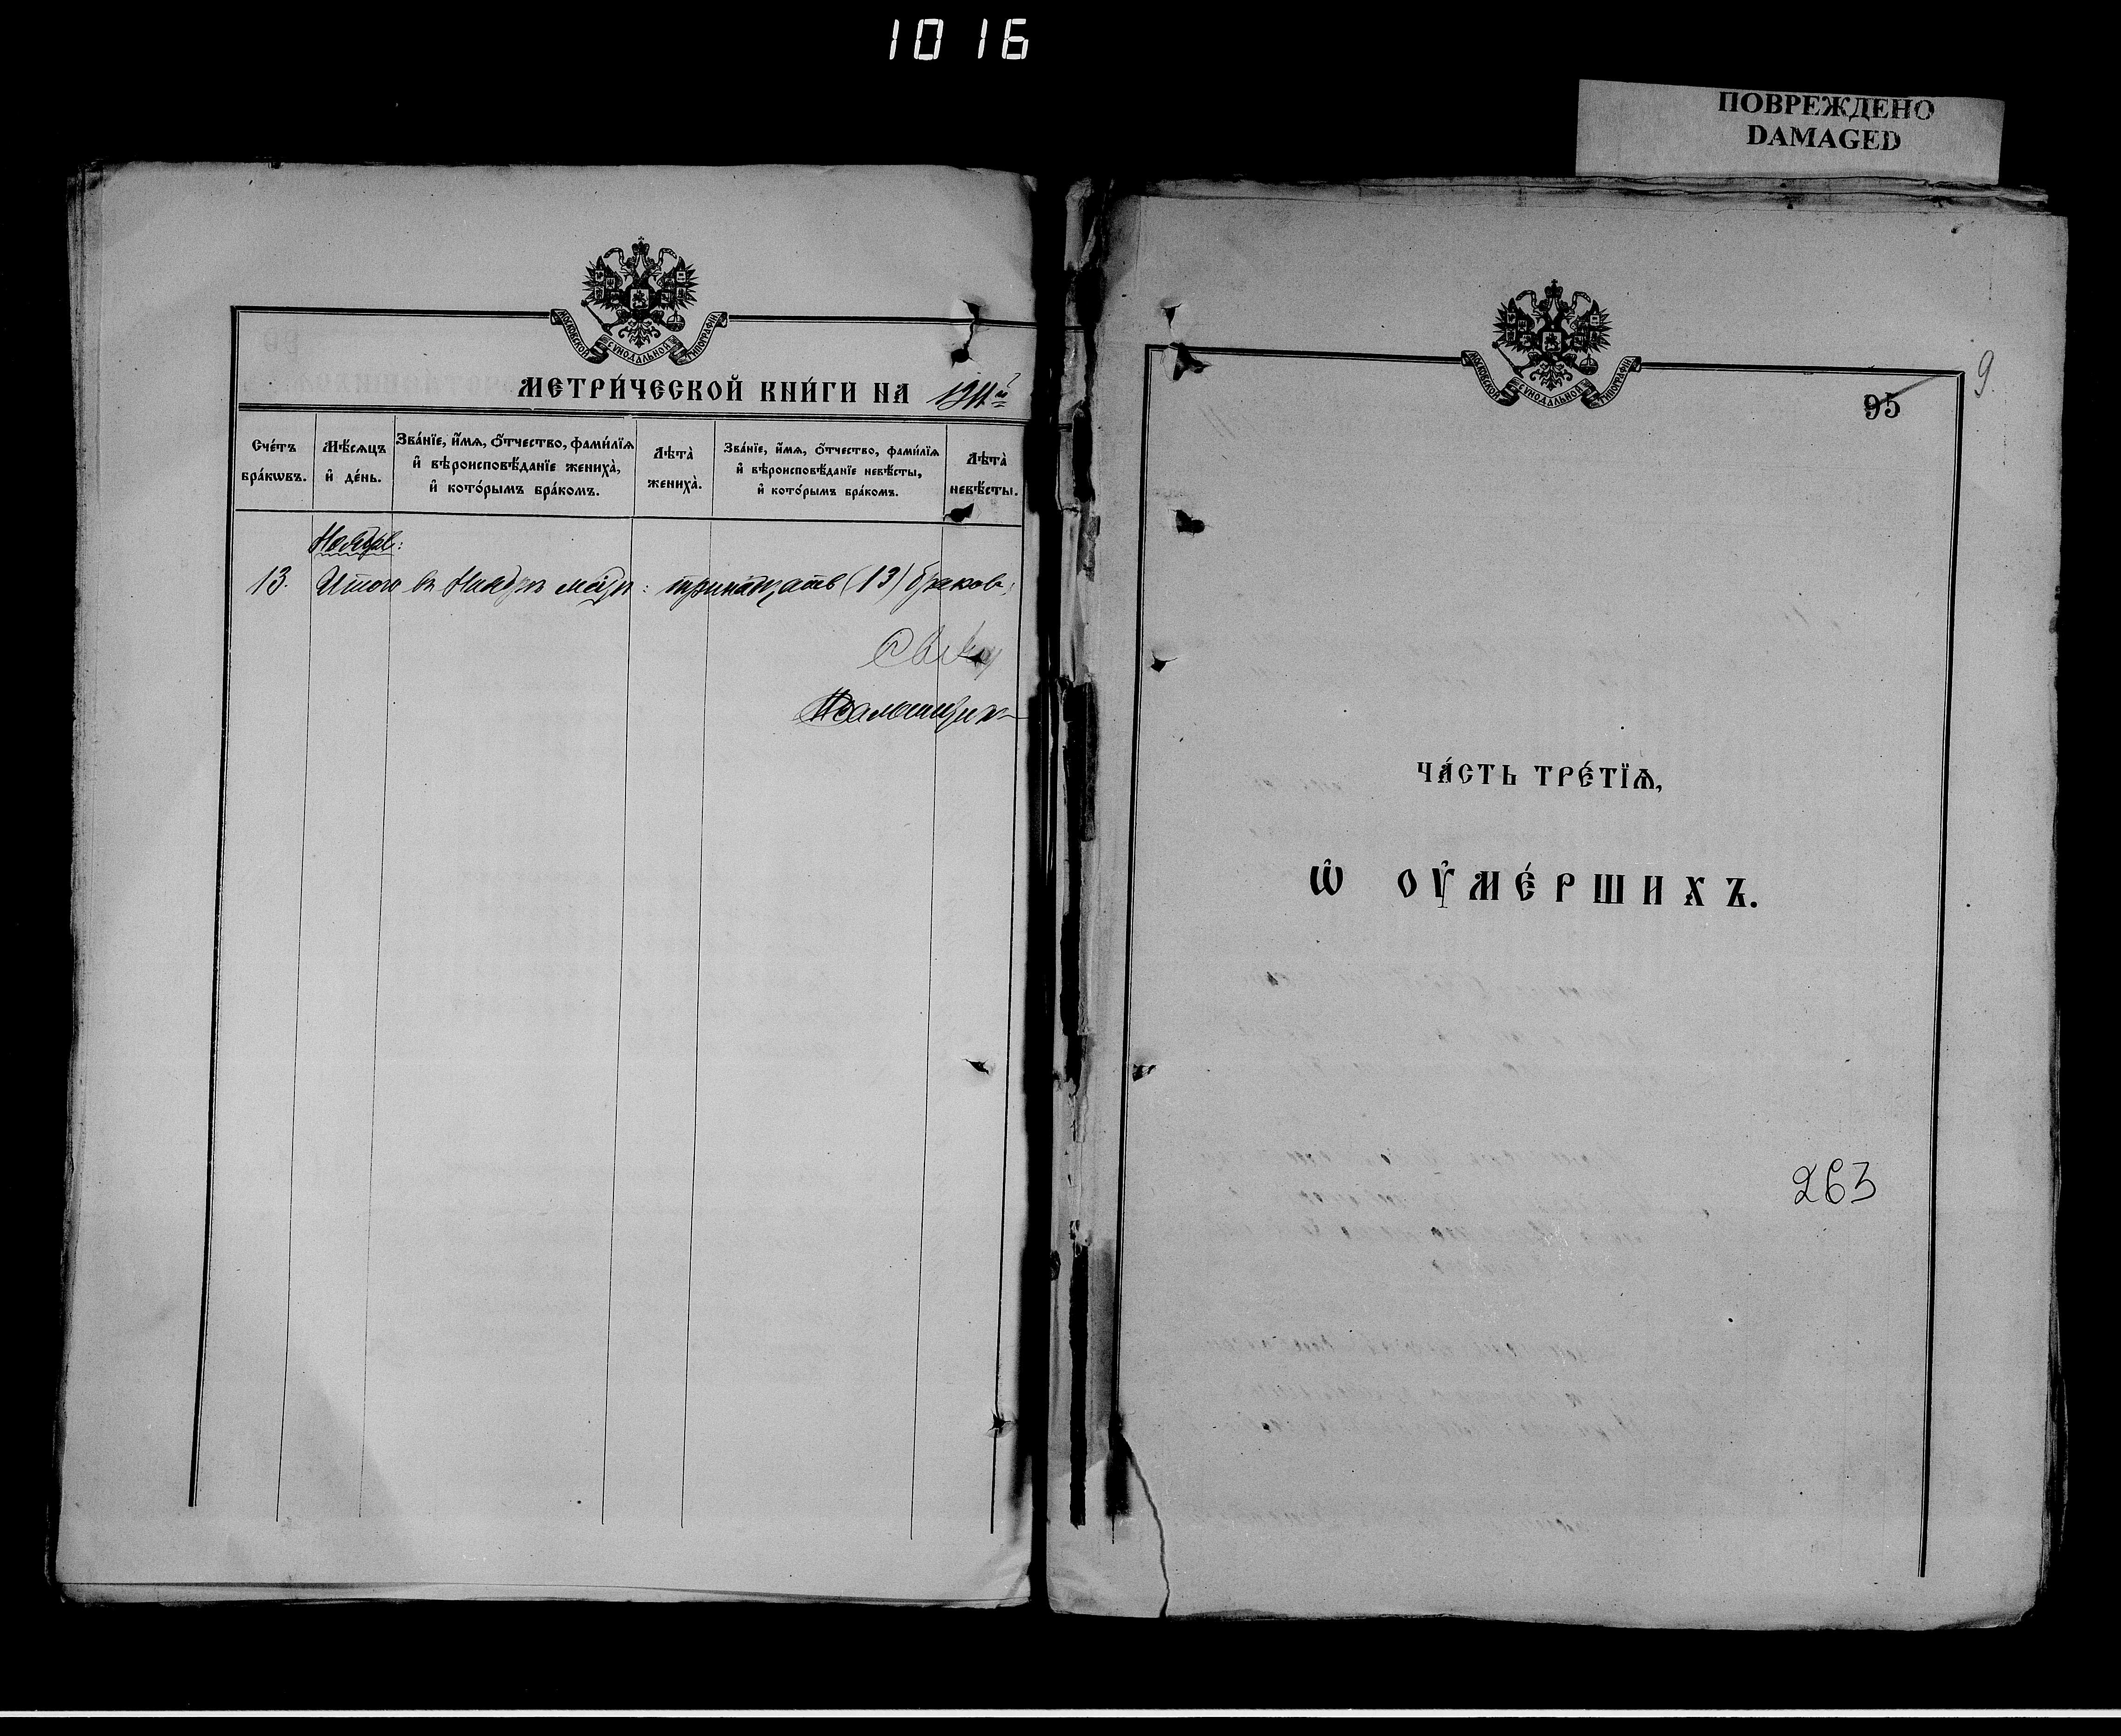 1016
ПОВРЕЖДЕНО
DAMAGED
МОСКОВСКОЙ СѴНОДАЛЬНОЙ ТИПОГРАФІИ
МЕТРИ́ЧЕСКОЙ КНИ́ГИ НА 1911й
Сче́тъ бра́кѡвъ.
Мѣ́сѧцъ и҆ де́нь.
Зва́нїе, и҆́мѧ, ѻ҆́тчество, фами́лїѧ и҆ вѣроисповѣ́данїе жениха̀, и҆ кото́рымъ бра́комъ.
Лѣта̀ жениха̀.
Зва́нїе, и҆́мѧ, ѻ҆́тчество, фами́лїѧ и҆ вѣроисповѣ́данїе невѣ́сты, и҆ кото́рымъ бра́комъ.
Лѣта̀ невѣ́сты.
Ноябрь:
13. Итого въ Ноябрѣ мѣсяцѣ: тринадцать (13) браковъ.
Псаломщикъ
МОСКОВСКОЙ СѴНОДАЛЬНОЙ ТИПОГРАФІИ
9
95
ЧА́СТЬ ТРЕ́ТЇѦ,
Ѡ҆ ОУ҆МЕ́РШИХЪ.
263